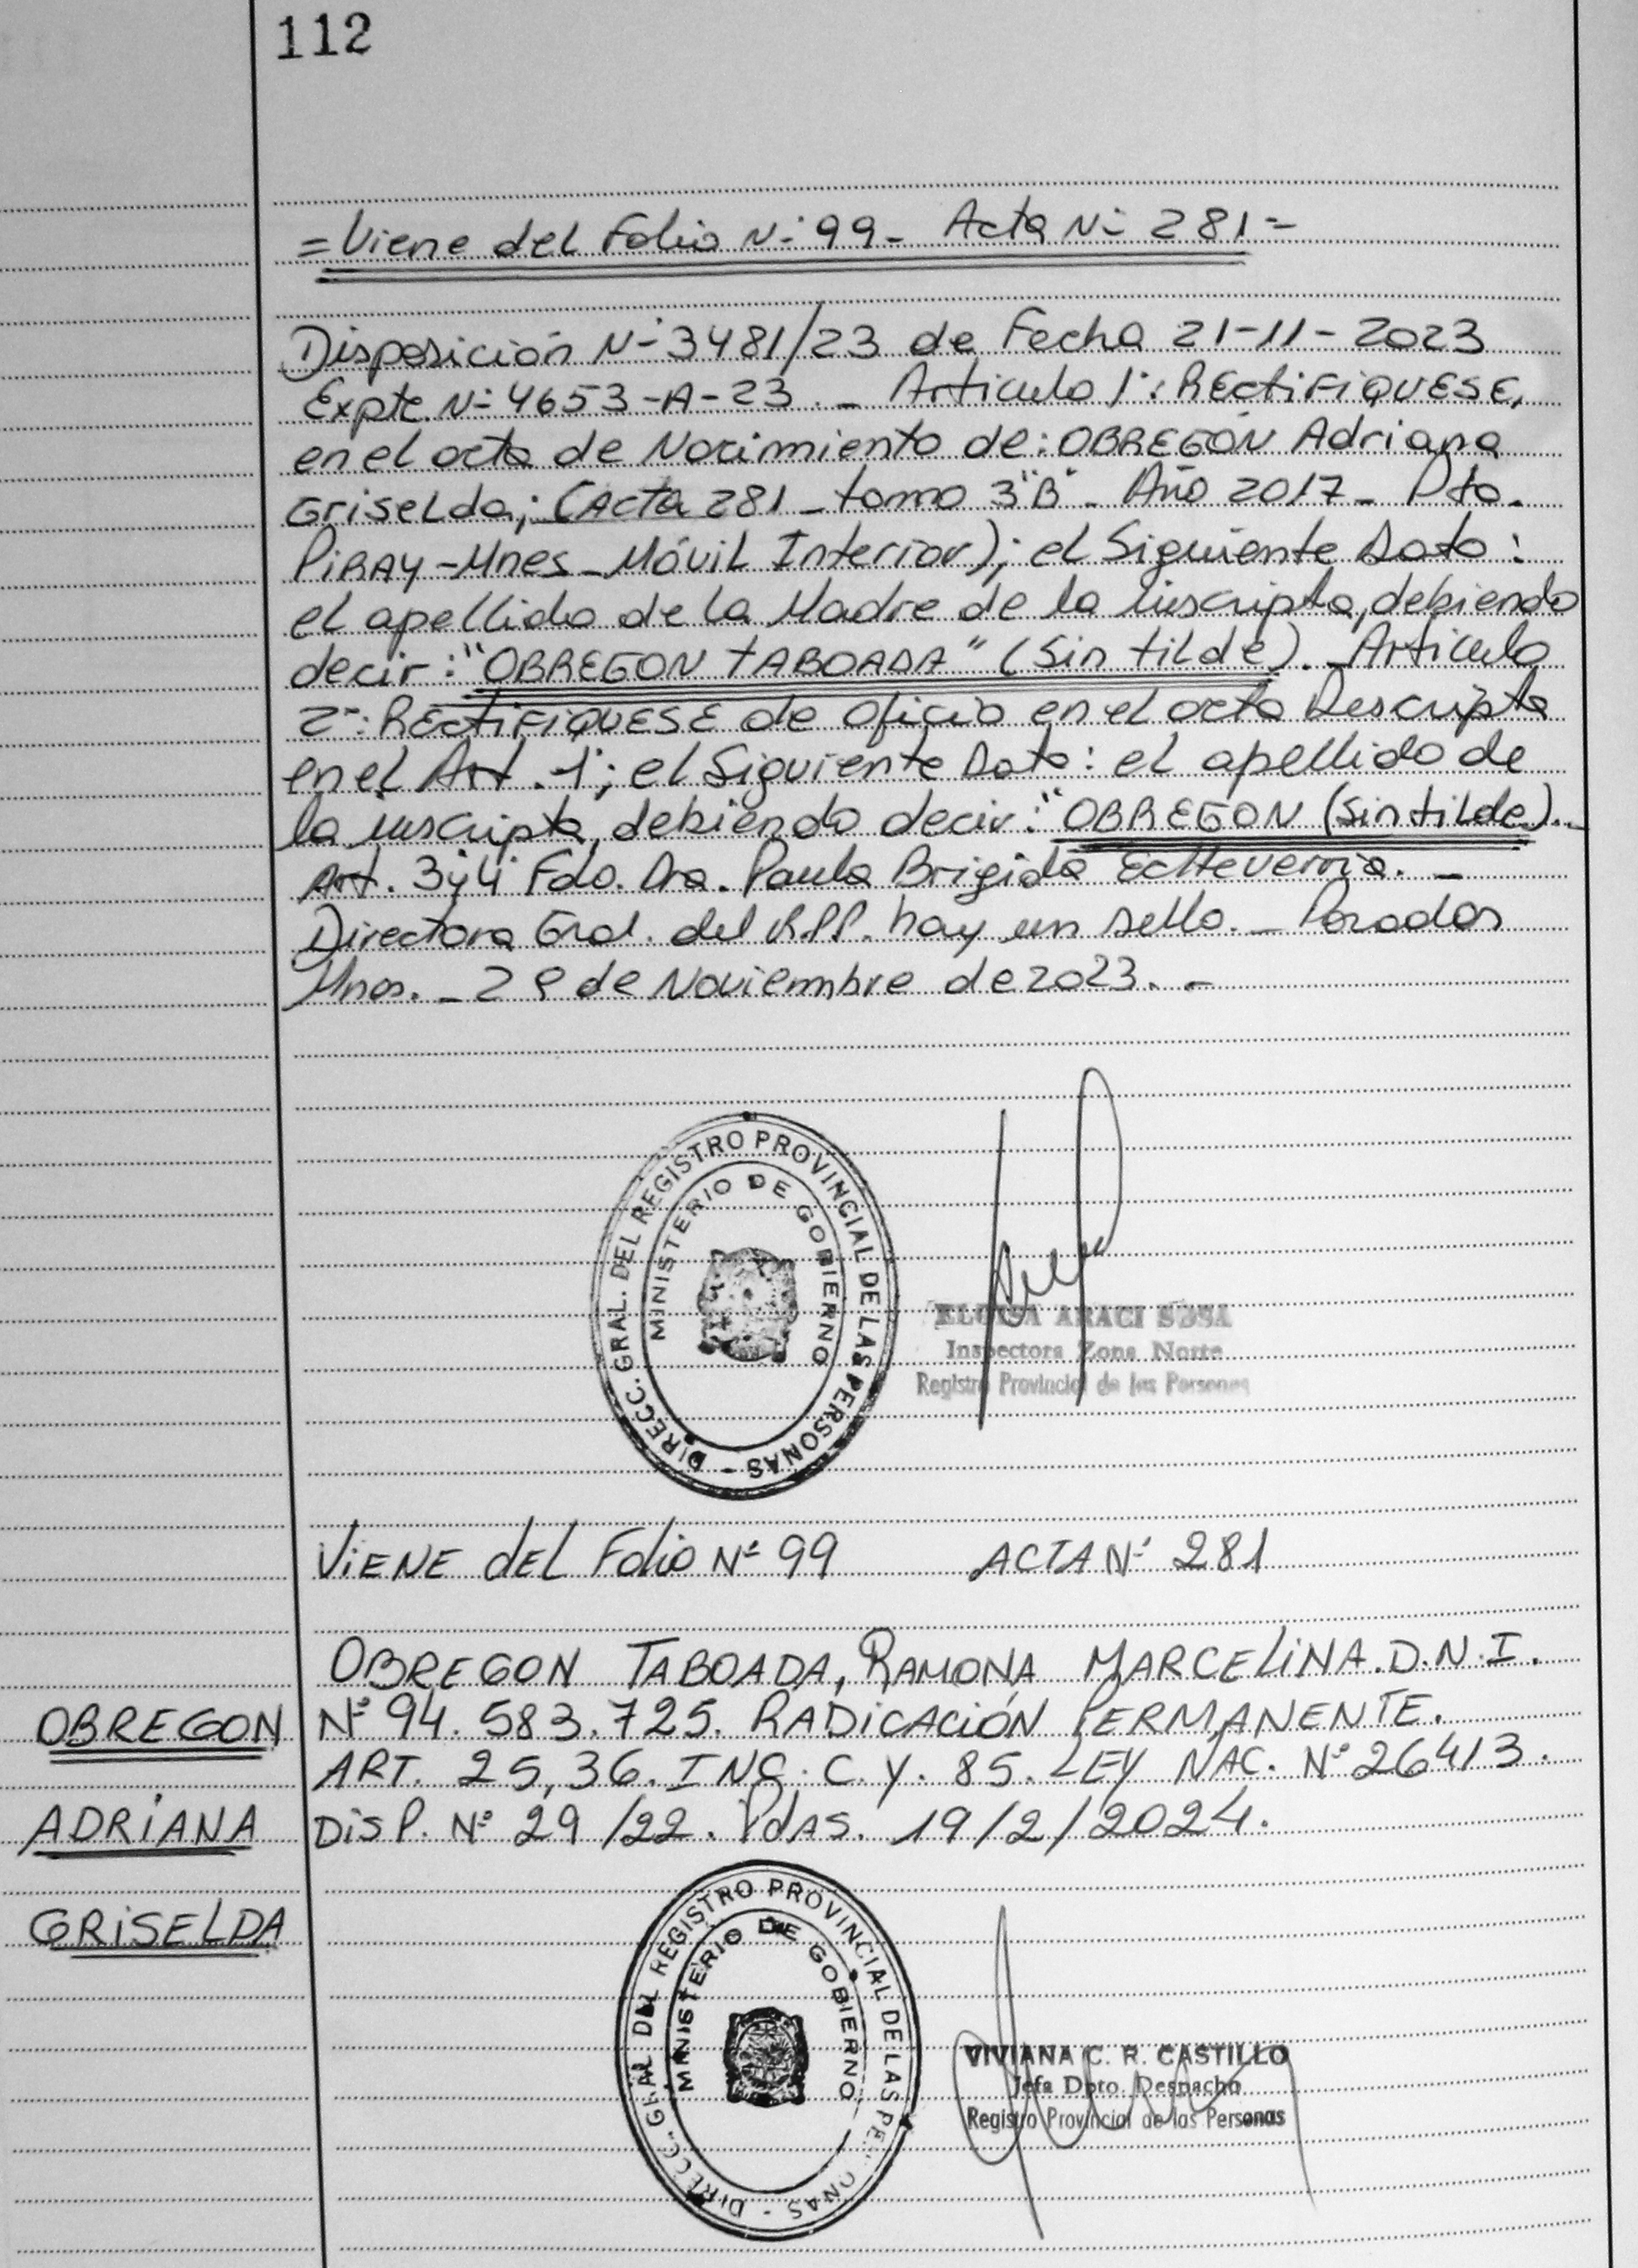 112
= Viene del Folio N° 99 - Acta N° 281 =
Disposición N° 3481/23 de Fecha 21-11-2023
Expte. N° 4653-A-23. - Articulo 1°: RECTIFIQUESE,
en el acta de Nacimiento de: OBREGÓN Adriana
Griselda; (Acta 281 - tomo 3°"B" - Año 2017 - Pto.
PIRAY - Mnes - Móvil Interior); el Siguiente Dato:
el apellido de la Madre de la inscripta, debiendo
decir: "OBREGON TABOADA" (Sin tilde). - Articulo
2°: RECTIFIQUESE de oficio en el acta Descripta
en el Art. 1°; el Siguiente Dato: el apellido de
la inscripta, debiendo decir: "OBREGON (Sin tilde). -
Art. 3 y 4 Fdo. Dra. Paula Brigida Echeverria. -
Directora Gral. del R.P.P. hay un sello. - Posadas
Mnes. - 29 de Noviembre de 2023. -
DIRECC. GRAL. DEL REGISTRO PROVINCIAL DE LAS PERSONAS -
MINISTERIO DE GOBIERNO
ELOISA ARACI SOSA
Inspectora Zona Norte
Registro Provincial de las Personas
VIENE DEL Folio N° 99 ACTA N° 281
OBREGON TABOADA, RAMONA MARCELINA. D.N.I.
OBREGON N° 94.583.725. RADICACIÓN PERMANENTE.
ART. 25, 36. INC. C. Y. 85. LEY NAC. N° 26413.
ADRIANA DISP. N° 29/22. Pdas. 19/2/2024.
GRISELDA
DIRECC. GRAL DEL REGISTRO PROVINCIAL DE LAS PERSONAS -
MINISTERIO DE GOBIERNO
VIVIANA C. R. CASTILLO
Jefa Dpto. Despacho
Registro Provincial de las Personas